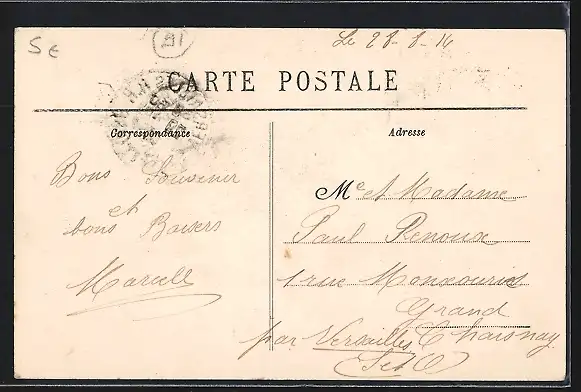 5 €
Le 28-8-14
CARTE POSTALE
Correspondance
Adresse
Bons Souvenir
et
bons Baisers
Marcelle
Mr et Madame
Paul Renoux
1 rue
Grand Chaisnay
par Versailles
S et O